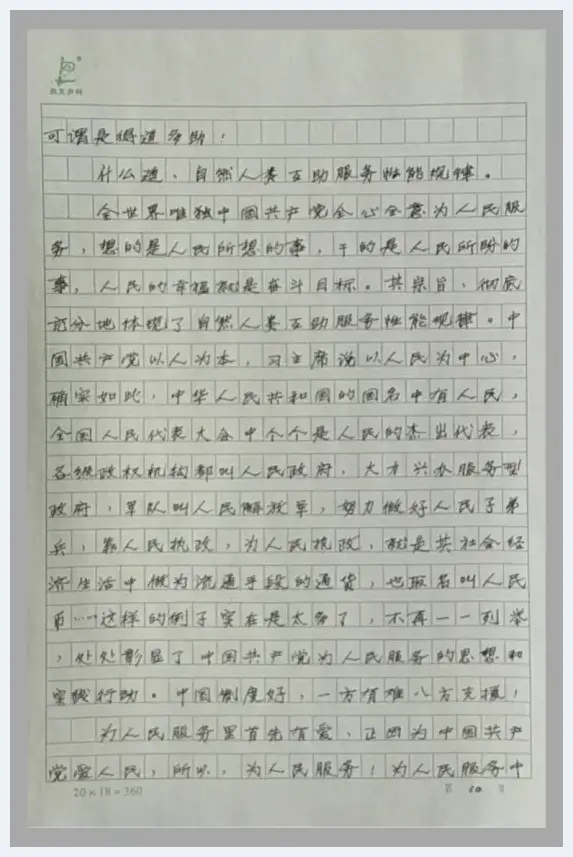 可谓是得道多助！
什么道、自然人类互助服务性能规律。
全世界唯独中国共产党全心全意为人民服
务，想的是人民所想的事，干的是人民所盼的
事，人民的幸福就是奋斗目标。其宗旨、彻底
充分地体现了自然人类互助服务性能规律。中
国共产党以人为本，习主席说以人民为中心，
确实如此，中华人民共和国的国名中有人民，
全国人民代表大会中个个是人民的杰出代表，
各级政权机构都叫人民政府、大力兴办服务型
政府，军队叫人民解放军，努力做好人民子弟
兵，靠人民执政，为人民执政，就是其社会经
济生活中做为流通手段的通货，也取名叫人民
币……这样的例子实在是太多了，不再一一列举
，处处彰显了中国共产党为人民服务的思想和
实践行动。中国制度好，一方有难八方支援！
为人民服务里首先有爱、正因为中国共产
党爱人民，所以，为人民服务！为人民服务中
20×18=360
第 10 页